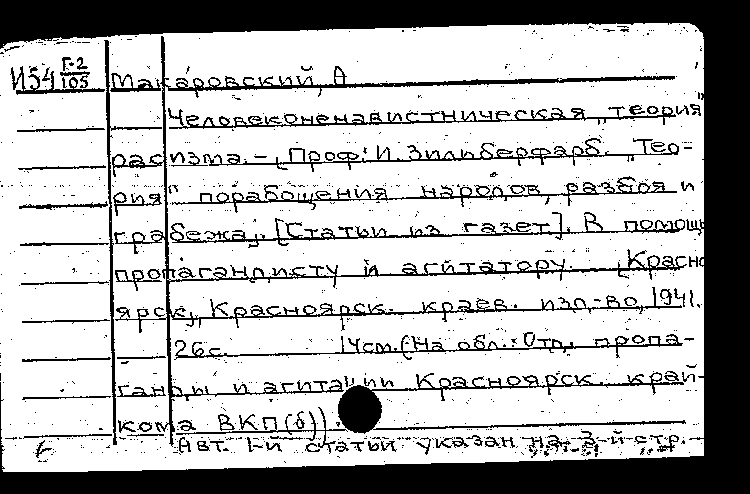 И54 Г-2/105 Макаровский, А
Человеконенавистническая „теория"
расизма. – [Проф. И. Зильберфарб. „Тео-
рия" порабощения народов, разбоя и
грабежа]. [Статьи из газет]. В помощь
пропагандисту и агитатору. [Красно
ярск], Красноярск. краев. изд-во, 1941.
26с. 14см. (На обл.: Отд. пропа-
ганды и агитации Красноярск. край-
кома ВКП(б)).
6 Авт. 1-й статьи указан на 3-й стр.